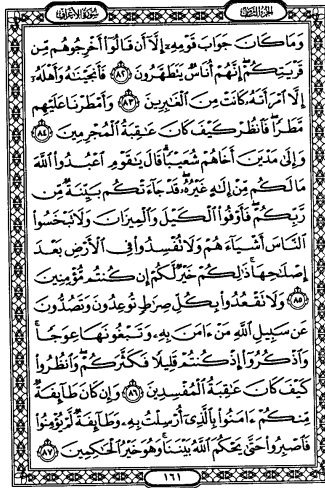 سورة الأعراف
الجزء الثامن
وَمَا كَانَ جَوَابَ قَوْمِهِۦٓ إِلَّآ أَن قَالُوٓا۟ أَخْرِجُوهُم مِّن
قَرْيَتِكُمْ إِنَّهُمْ أُنَاسٌ يَتَطَهَّرُونَ ٨٢ فَأَنجَيْنَٰهُ وَأَهْلَهُۥٓ
إِلَّا ٱمْرَأَتَهُۥ كَانَتْ مِنَ ٱلْغَٰبِرِينَ ٨٣ وَأَمْطَرْنَا عَلَيْهِم
مَّطَرًا فَٱنظُرْ كَيْفَ كَانَ عَٰقِبَةُ ٱلْمُجْرِمِينَ ٨٤
وَإِلَىٰ مَدْيَنَ أَخَاهُمْ شُعَيْبًا قَالَ يَٰقَوْمِ ٱعْبُدُوا۟ ٱللَّهَ
مَا لَكُم مِّنْ إِلَٰهٍ غَيْرُهُۥ قَدْ جَآءَتْكُم بَيِّنَةٌ مِّن
رَّبِّكُمْ فَأَوْفُوا۟ ٱلْكَيْلَ وَٱلْمِيزَانَ وَلَا تَبْخَسُوا۟
ٱلنَّاسَ أَشْيَآءَهُمْ وَلَا تُفْسِدُوا۟ فِى ٱلْأَرْضِ بَعْدَ
إِصْلَٰحِهَا ذَٰلِكُمْ خَيْرٌ لَّكُمْ إِن كُنتُم مُّؤْمِنِينَ
٨٥ وَلَا تَقْعُدُوا۟ بِكُلِّ صِرَٰطٍ تُوعِدُونَ وَتَصُدُّونَ
عَن سَبِيلِ ٱللَّهِ مَنْ ءَامَنَ بِهِۦ وَتَبْغُونَهَا عِوَجًا
وَٱذْكُرُوٓا۟ إِذْ كُنتُمْ قَلِيلًا فَكَثَّرَكُمْ وَٱنظُرُوا۟
كَيْفَ كَانَ عَٰقِبَةُ ٱلْمُفْسِدِينَ ٨٦ وَإِن كَانَ طَآئِفَةٌ
مِّنكُمْ ءَامَنُوا۟ بِٱلَّذِىٓ أُرْسِلْتُ بِهِۦ وَطَآئِفَةٌ لَّمْ يُؤْمِنُوا۟
فَٱصْبِرُوا۟ حَتَّىٰ يَحْكُمَ ٱللَّهُ بَيْنَنَا وَهُوَ خَيْرُ ٱلْحَٰكِمِينَ ٨٧
١٦١